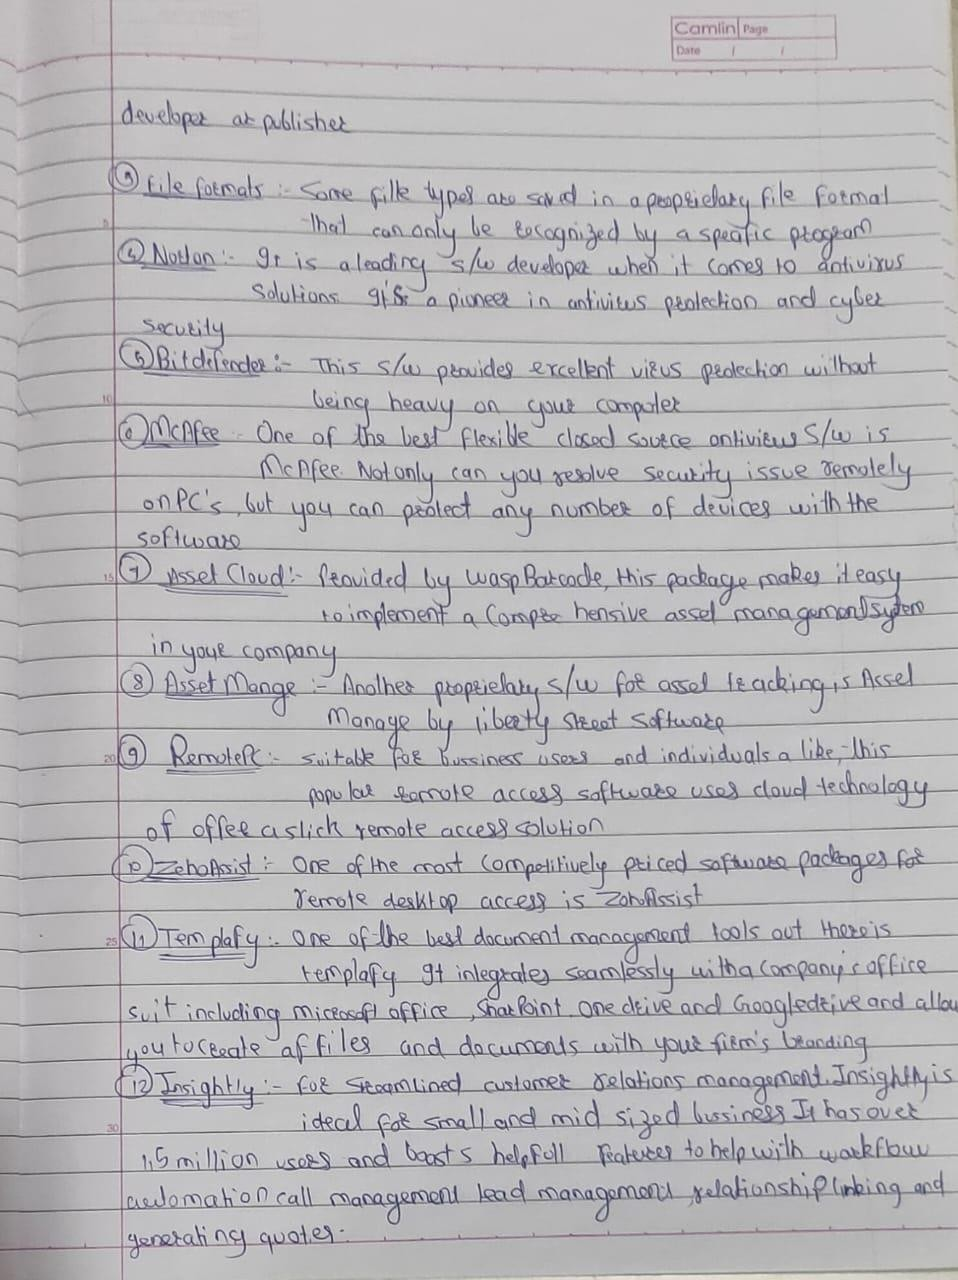 Camlin Page
Date / /
developer or publisher
③ file formats :- Some filk types are saved in a proprietary file format
that can only be recognized by a specific program
④ Norton :- It is a leading s/w developer when it comes to antivirus
solutions It's a pioneer in antivirus protection and cyber
security
5
⑤ Bitdefender :- This s/w provides excellent virus protection without
10
being heavy on your computer
⑥ McAfee - One of the best flexible closed source antivirus s/w is
McAfee. Not only can you resolve security issue remotely
on PC's, but you can protect any number of devices with the
software
15
⑦ Asset Cloud :- Provided by wasp Barcode, this package makes it easy
to implement a Compre hensive asset management system
in your company
⑧ Asset Mange :- Another proprietary s/w for asset tracking is Asset
Manage by liberty street software
20
⑨ RemotePC :- suitable for bussiness users and individuals a like, this
popular remote access software uses cloud technology
of offer a slick remote access solution
⑩ ZohoAssist :- One of the most competitively priced software packages for
remote desktop access is ZohoAssist
25
⑪ Templafy :- One of the best document management tools out there is
templafy It integrates seamlessly with a company's office
suit including microsoft office, SharePoint One drive and Google drive and allow
you to create of files and documents with your firm's branding
⑫ Insightly :- For streamlined customer relations management. Insightly is
30
ideal for small and mid sized bussiness It has over
1.5 million users and boasts helpfull features to help with workflow
automation call management lead management, relationship linking and
generating quotes.